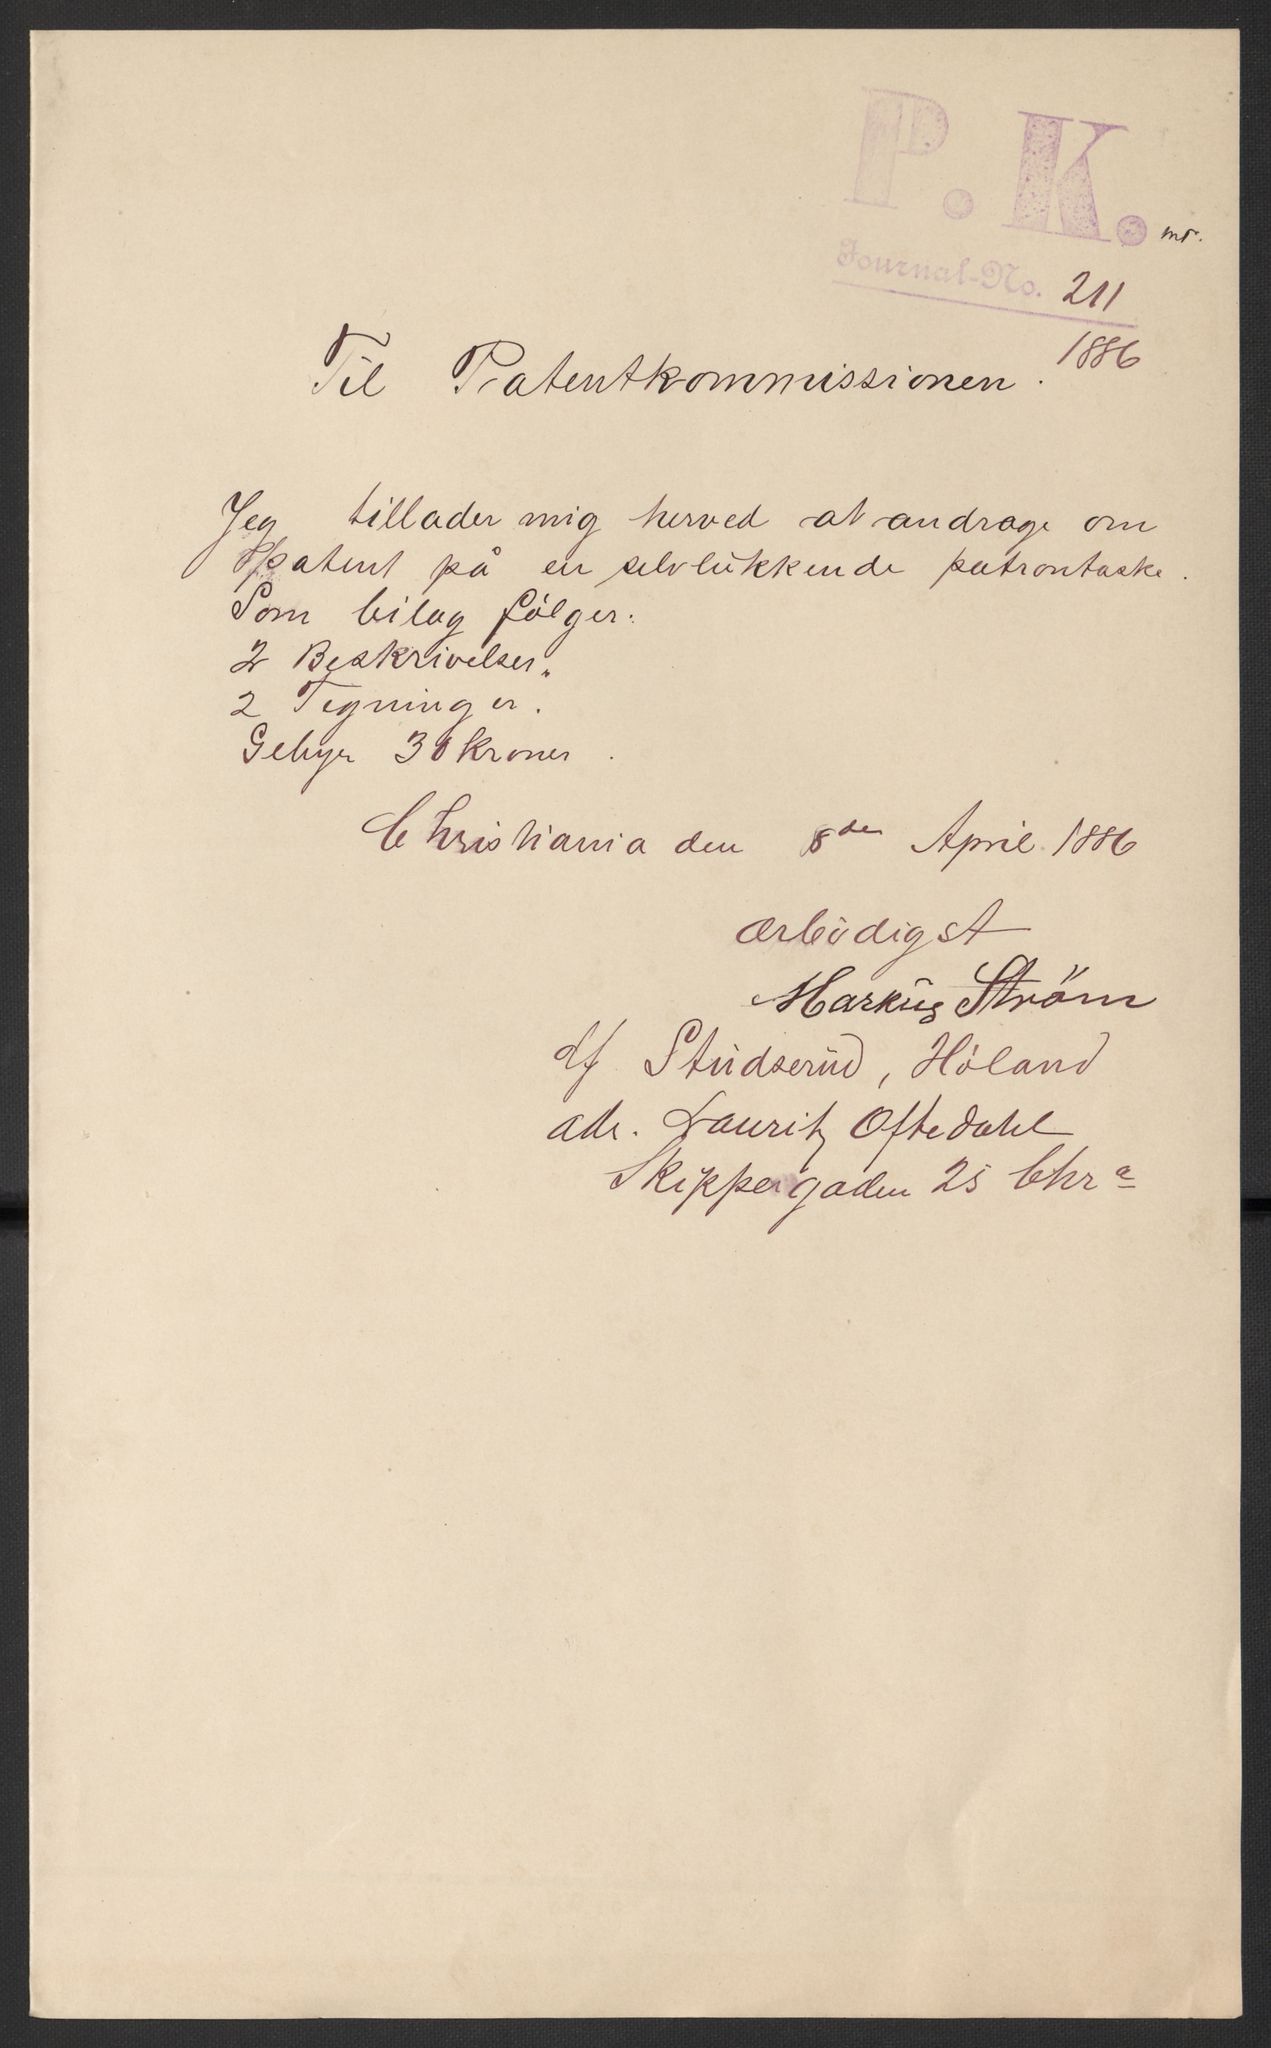 P. K.
mr.
Journal-No. 211
1886
Til Patentkommissionen.
Jeg tillader mig herved at andrage om
patent på en selvlukkende patrontaske.
Som bilag følger:
2 Beskrivelser.
2 Tegninger.
Gebyr 30 kroner.
Christiania den 8de April 1886
ærbödigst
Markus Ström
Studserud, Höland
adr. Lauritz Oftedahl
Skippergaden 25 Chra